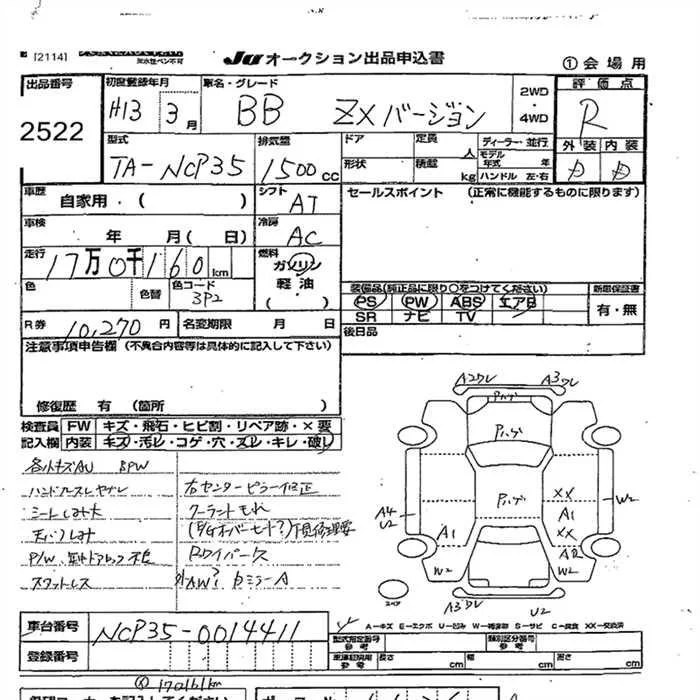 [2114]
耐水性ペン不可
JU オークション出品申込書
①会場用
出品番号
2522
初度登録年月
H13 3月
車名・グレード
BB ZXバージョン
2WD・4WD
評価点
R
外装 内装
D D
型式
TA-NCP35
排気量
1500cc
ドア
定員 人
ディーラー・並行
モデル年式 年
形状
積載 kg
ハンドル 左・右
車歴
自家用・( )
シフト
AT
セールスポイント (正常に機能するものに限ります)
車検
年 月( 日)
冷房
AC
走行
17万0千160km
燃料
ガソリン
軽油
( )
色
色替
色コード
3P2
装備品(純正品に限り○をつけてください)
新車保証書
PS PW ABS エアB
SR ナビ TV
有・無
R券
10,270円
名変期限 月 日
後日品
注意事項申告欄 (不具合内容等は具体的に記入して下さい)
修復歴 有 (箇所 )
検査員記入欄
FW キズ・飛石・ヒビ割・リペア跡・×要
内装 キズ・汚レ・コゲ・穴・スレ・キレ・破レ
各小キズAU BPW
ハンドルスレヤブレ
シートしみ大
天バリしみ
スタットレス
右センターピラー修正
クーラントもれ
Rワイパー欠
外AW? Dミラー A
A2ワレ
A3ワレ
Pハゲ
Pハゲ
Pハゲ
XX
A1
XX
W2
A4
U2
A1
W2
W2
スペア
A3ワレ
U2
A-キズ E-エクボ U-凹み W-補修跡 S-サビ C-腐食 XX-交換済
車台番号
NCP35-0014411
登録番号
型式指定番号
参考
類別区分番号
参考
長さ cm
幅 cm
高さ cm
170161km